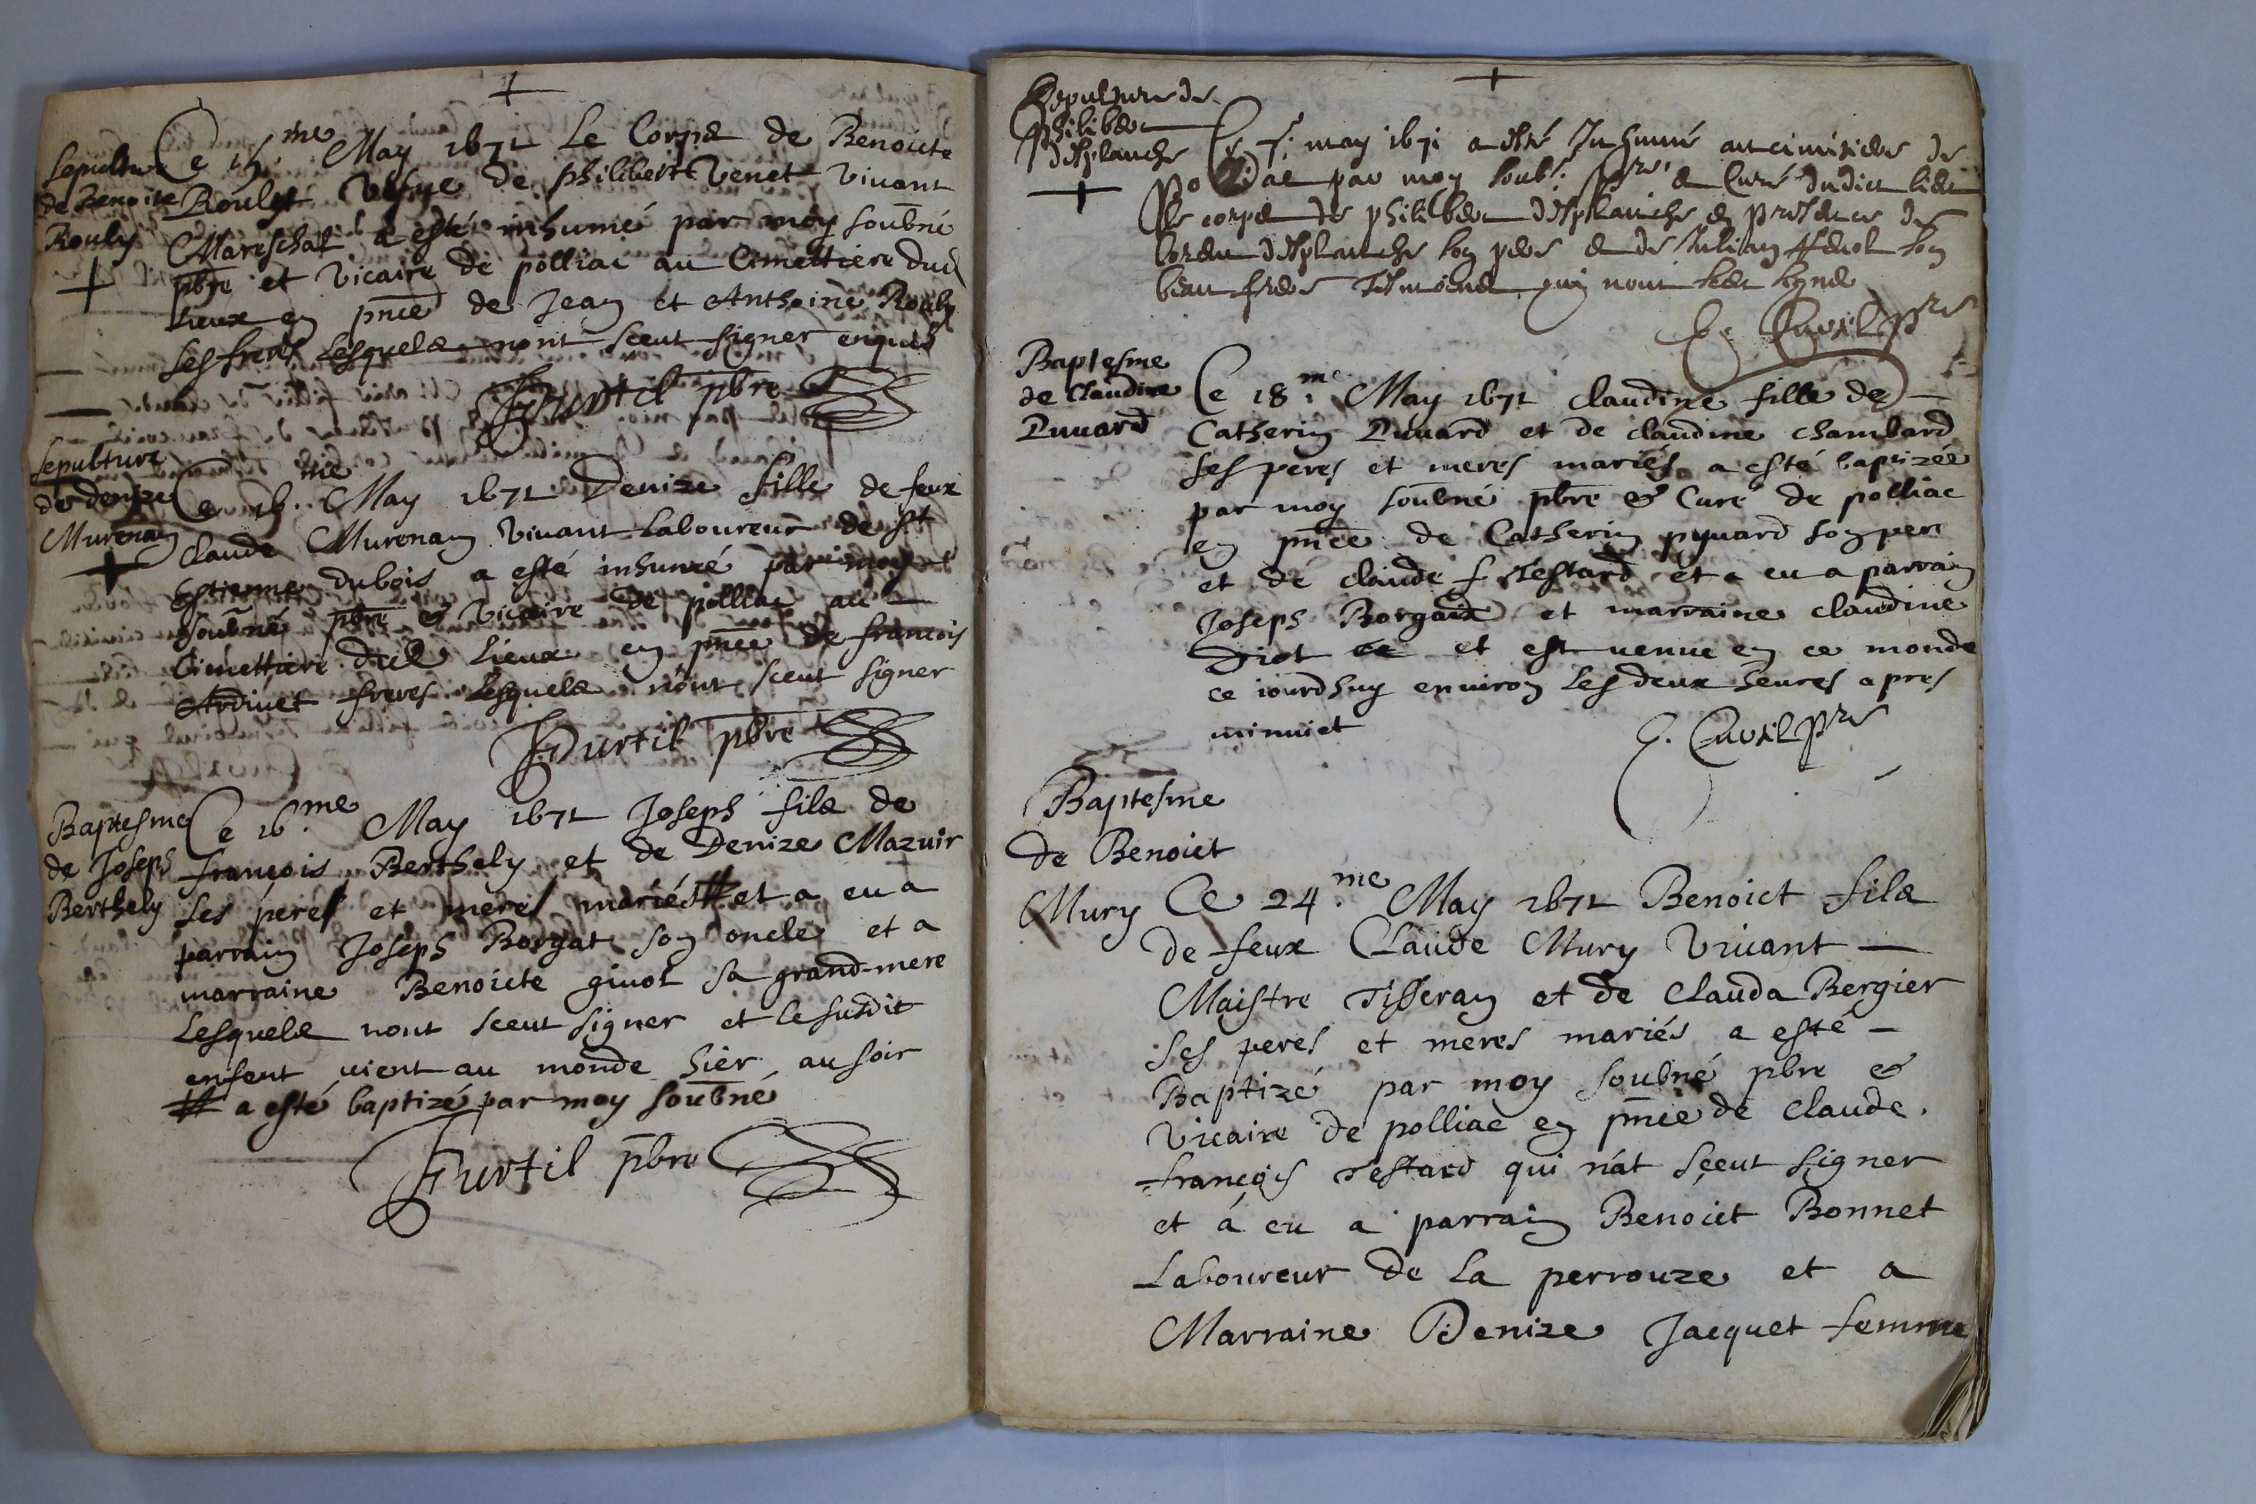 +
Sepulture
de Benoite
Rouly
+
Ce 15.me May 1671 Le Corps de Benoicte
Rouly Vefve de philibert Venet vivant
Mareschal a esté inhumé par moy soubné
pbre et vicaire de polliac au Cimettiere dud
Lieux en pnce de Jean et Anthoine Rouly
ses freres Lesquels nont sceut signer enquis
Furtil pbre
Sepulture
de denize
Murenam
+
Ce 16.me May 1671 Denize fille de feux
claude Murenam vivant Laboureur de St
Estienne dubois a esté inhumé par moy
soubné pbre & vicaire de polliac au
Cimettiere dud Lieux en pnce de francois
Ardinet freres Lesquels nont sceut signer
Furtil pbre
Baptesme
de Joseph
Berthely
Ce 16.me May 1671 Joseph fils de
françois Berthely et de Denize Mazuir
ses peres et meres mariés # et a eu a
parrain Joseph Borgat son oncle et a
marraine Benoicte givot sa grand-mere
Lesquels nont sceut signer et le susdit
enfent vient au monde hier au soir
# a esté baptizé par moy soubné
Furtil pbre
+
Sepulture de
philibert
desplanche
+
Ce may 1671 a esté Inhumé au cimetiere de
Poliac par moy soubs. pre & Curé dudict lieu
le corps de philibert desplanche en presence de
desplanche son pere & de Julian son
beau frere tesmoins qui nont sceu signe
C. Cuvil pre
Baptesme
de Claudine
Puvard
Ce 18.me May 1671 claudine fille de
Catherin Puvard et de claudine chambard
ses peres et meres mariés a esté baptizée
par moy soubné pbre & Curé de polliac
en pnce de Catherin puvard son pere
et de claude f testard et a eu a parrain
Joseph Borgaix et marraine claudine
Diot et est venue en ce monde
ce iourdhuy environ les deux heures apres
minuiet
C. Cuvil pre
Baptesme
de Benoict
Mury
Ce 24.me May 1671 Benoict fils
de feux Claude Mury Vivant
Maistre Tisseran et de Clauda Bergier
ses peres et meres mariés a esté
Baptizé par moy soubné pbre &
Vicaire de polliac en pnce de Claude
françois Testard qui n'at sçeut signer
et á eu a parrain Benoict Bonnet
Laboureur de La perrouze et a
Marraine Denize Jacquet femme